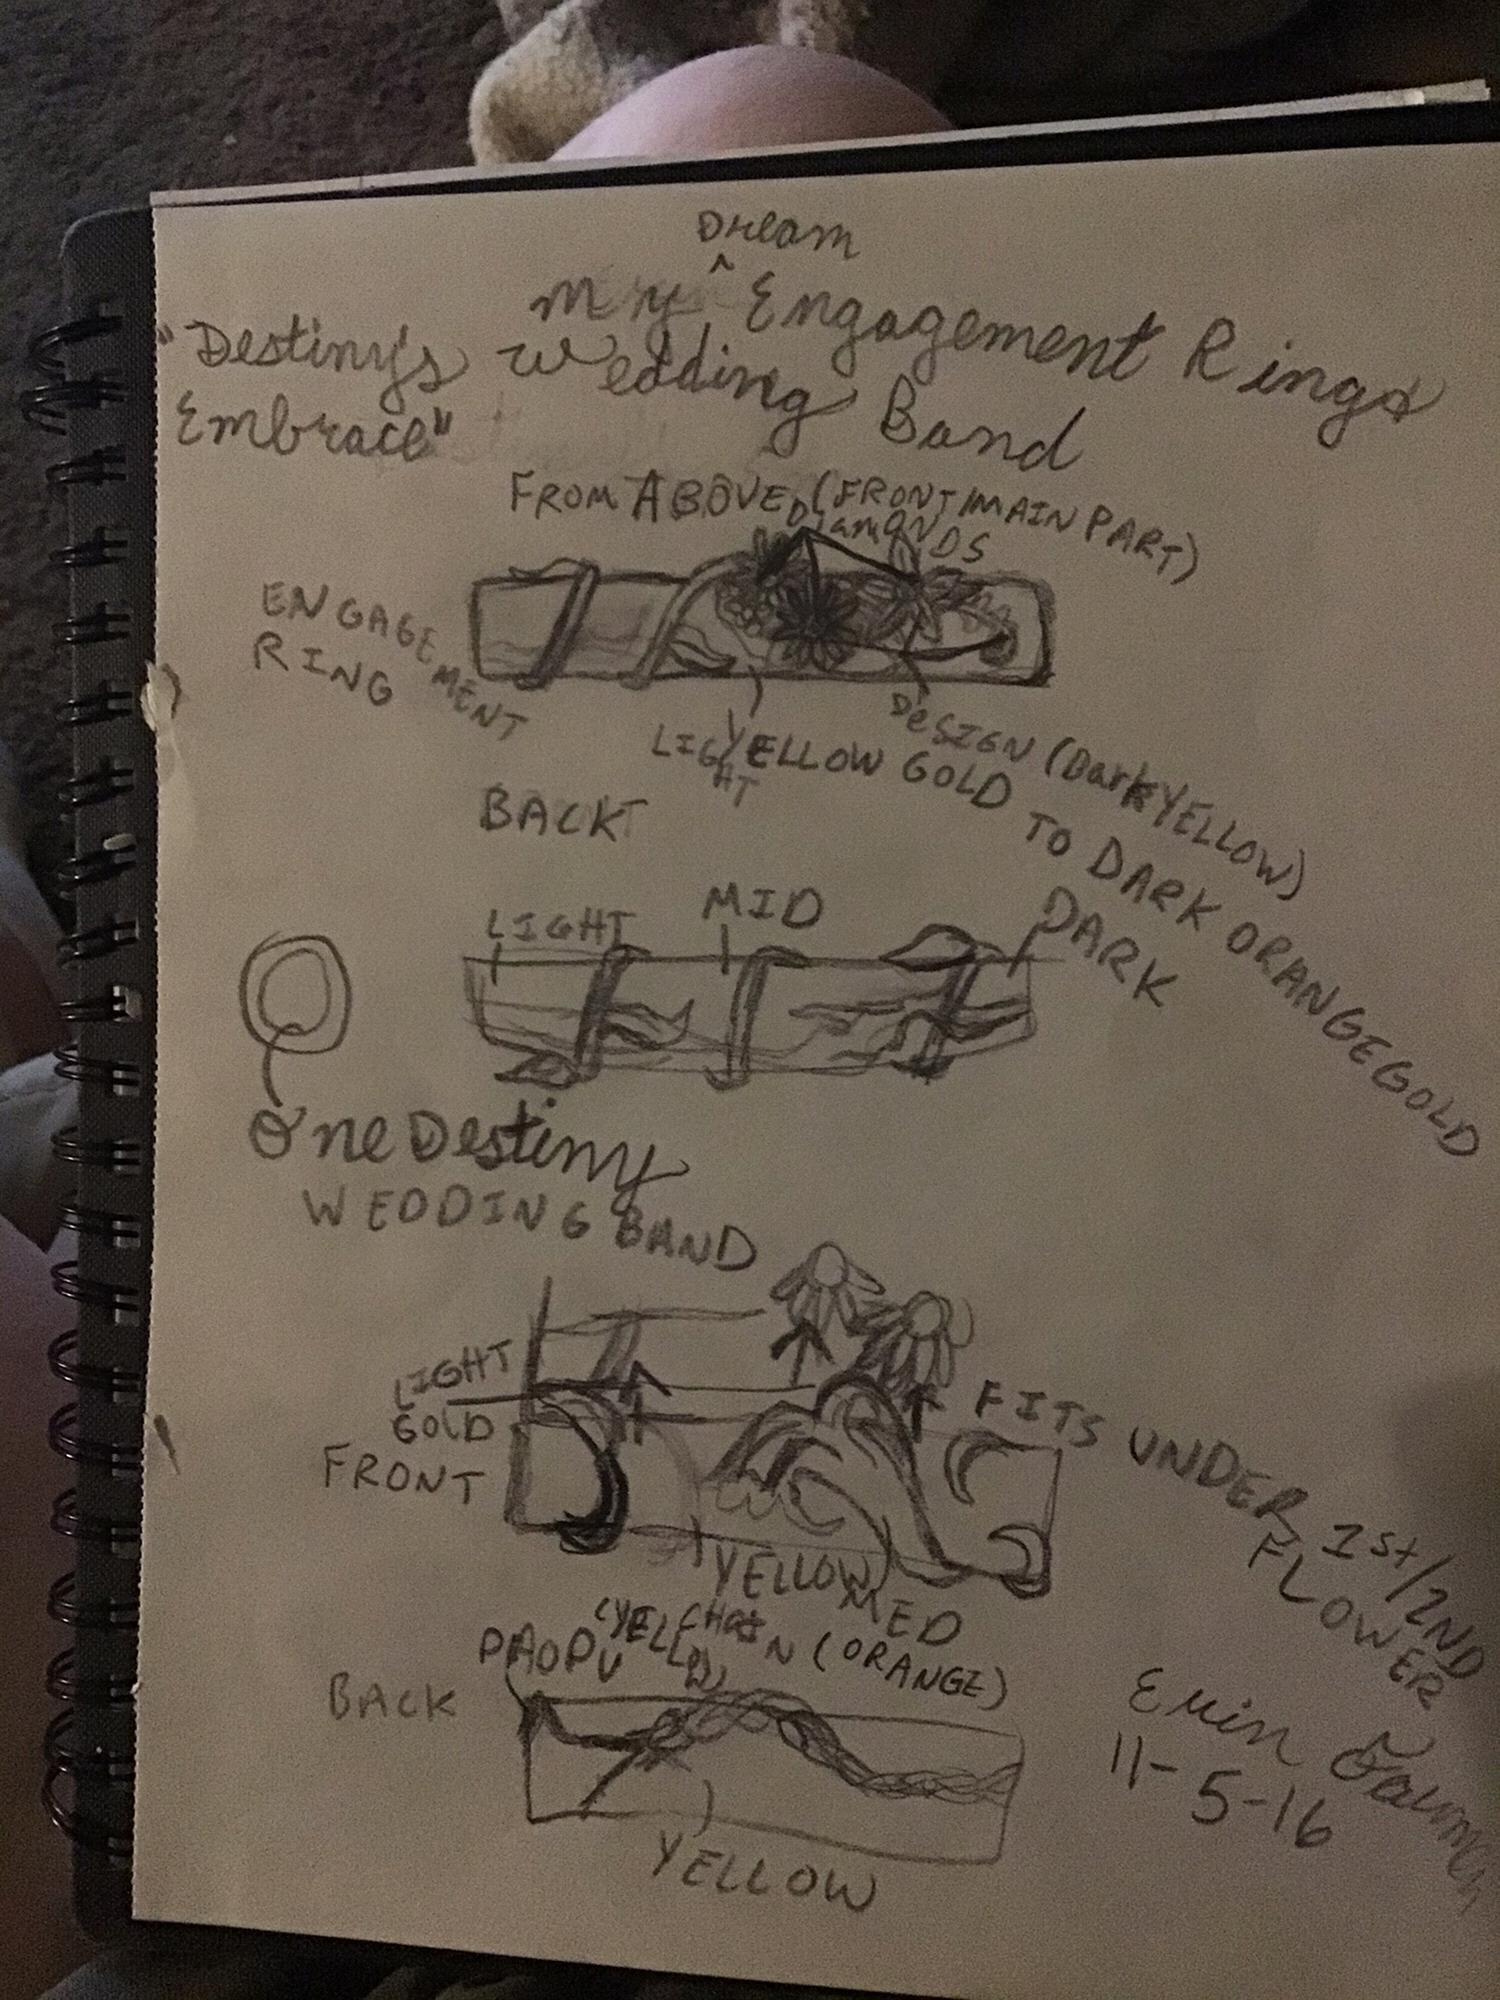 Dream
My ^ Engagement Rings
"Destiny's
Embrace"
Wedding Band
FROM ABOVE (FRONT/MAIN PART)
DIamONDS
ENGAGEMENT
RING
DeSIGN (Dark YELLOW)
LIGHT YELLOW GOLD TO DARK ORANGE GOLD
BACK
LIGHT
MID
DARK
One Destiny
WEDDING BAND
LIGHT
GOLD
FRONT
FITS UNDER 1st/2ND
FLOWER
YELLOW
MED
PAOPU
(YELLOW)
CHAIN (ORANGE)
BACK
YELLOW
Erin
11-5-16